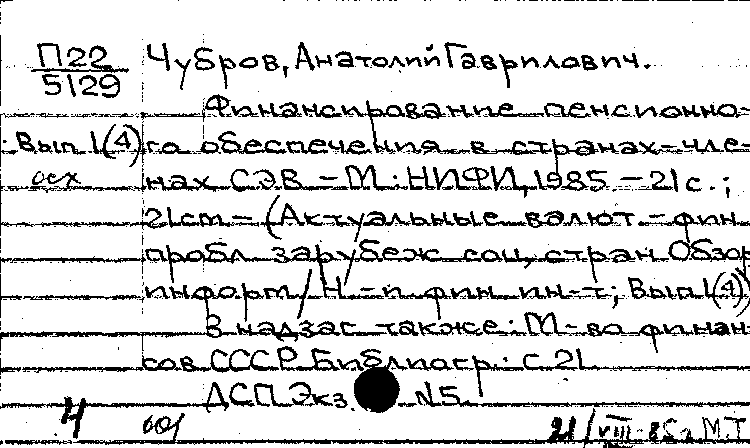 П22
5129
Чубров, Анатолий Гаврилович.
Финансирование пенсионно-
Вып 1(4) го обеспечения в странах-чле-
осх нах СЭВ. - М.: НИФИ, 1985. - 21 с.;
21 см - (Актуальные валют. - фин.
пробл. зарубеж. соц. стран. Обзор.
информ / Н.-и. фин. ин-т; Вып 1(4)
В надзаг. также: М-во финан-
сов СССР. Библиогр.: с. 21
ДСП. Экз. N5.
4
21/VIII-85г. М.Т